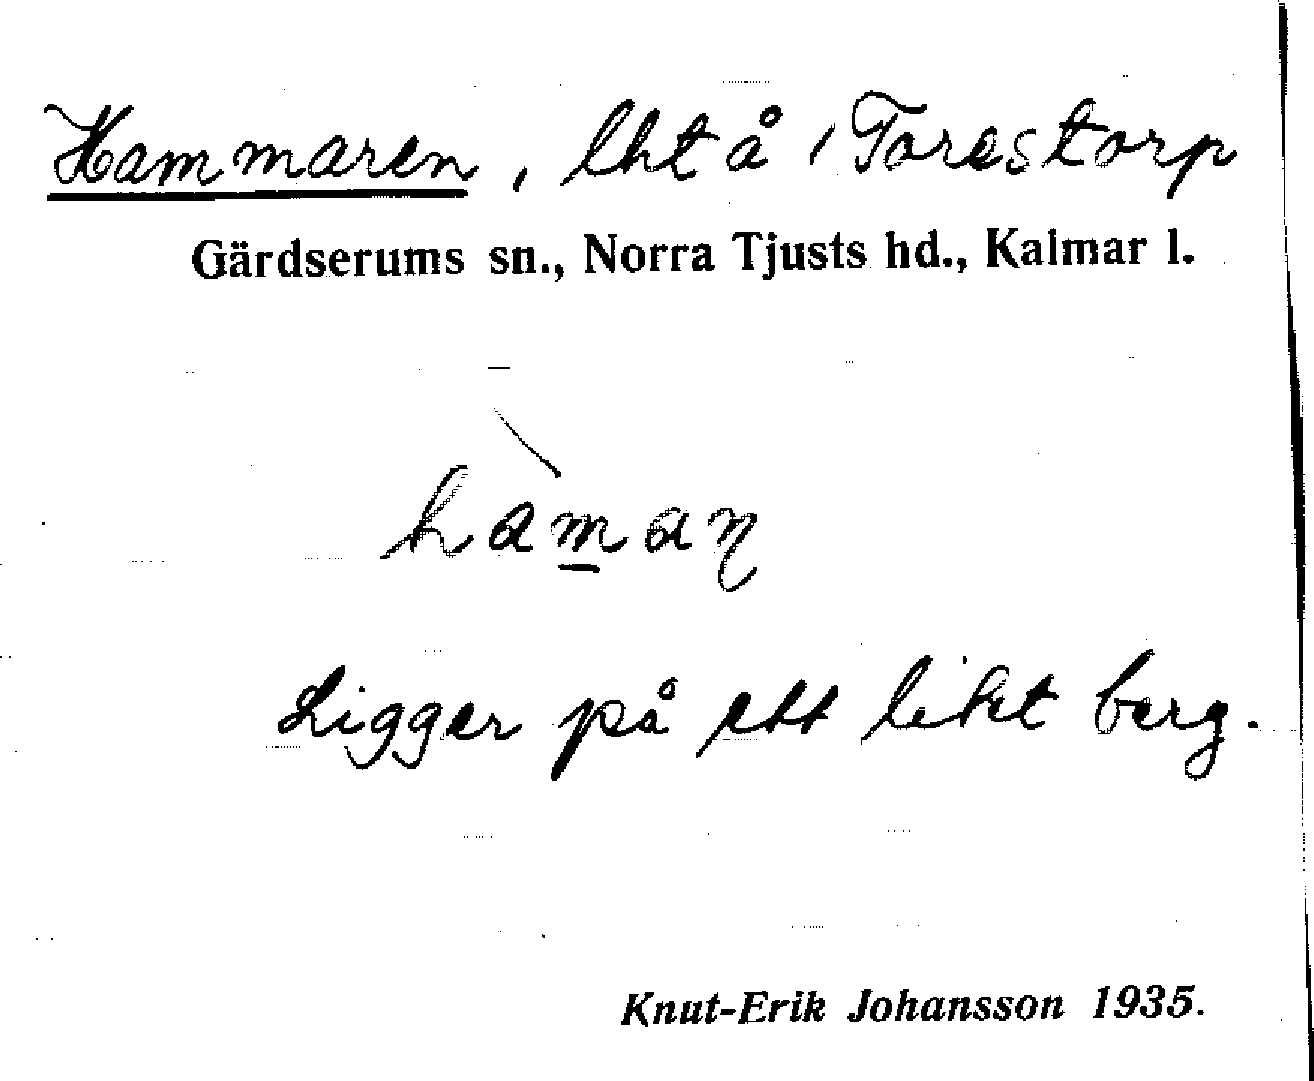 Hammaren, lht å 1 Torestorp
Gärdserums sn., Norra Tjusts hd., Kalmar l.
hàman
Ligger på ett likt berg.
Knut-Erik Johansson 1935.